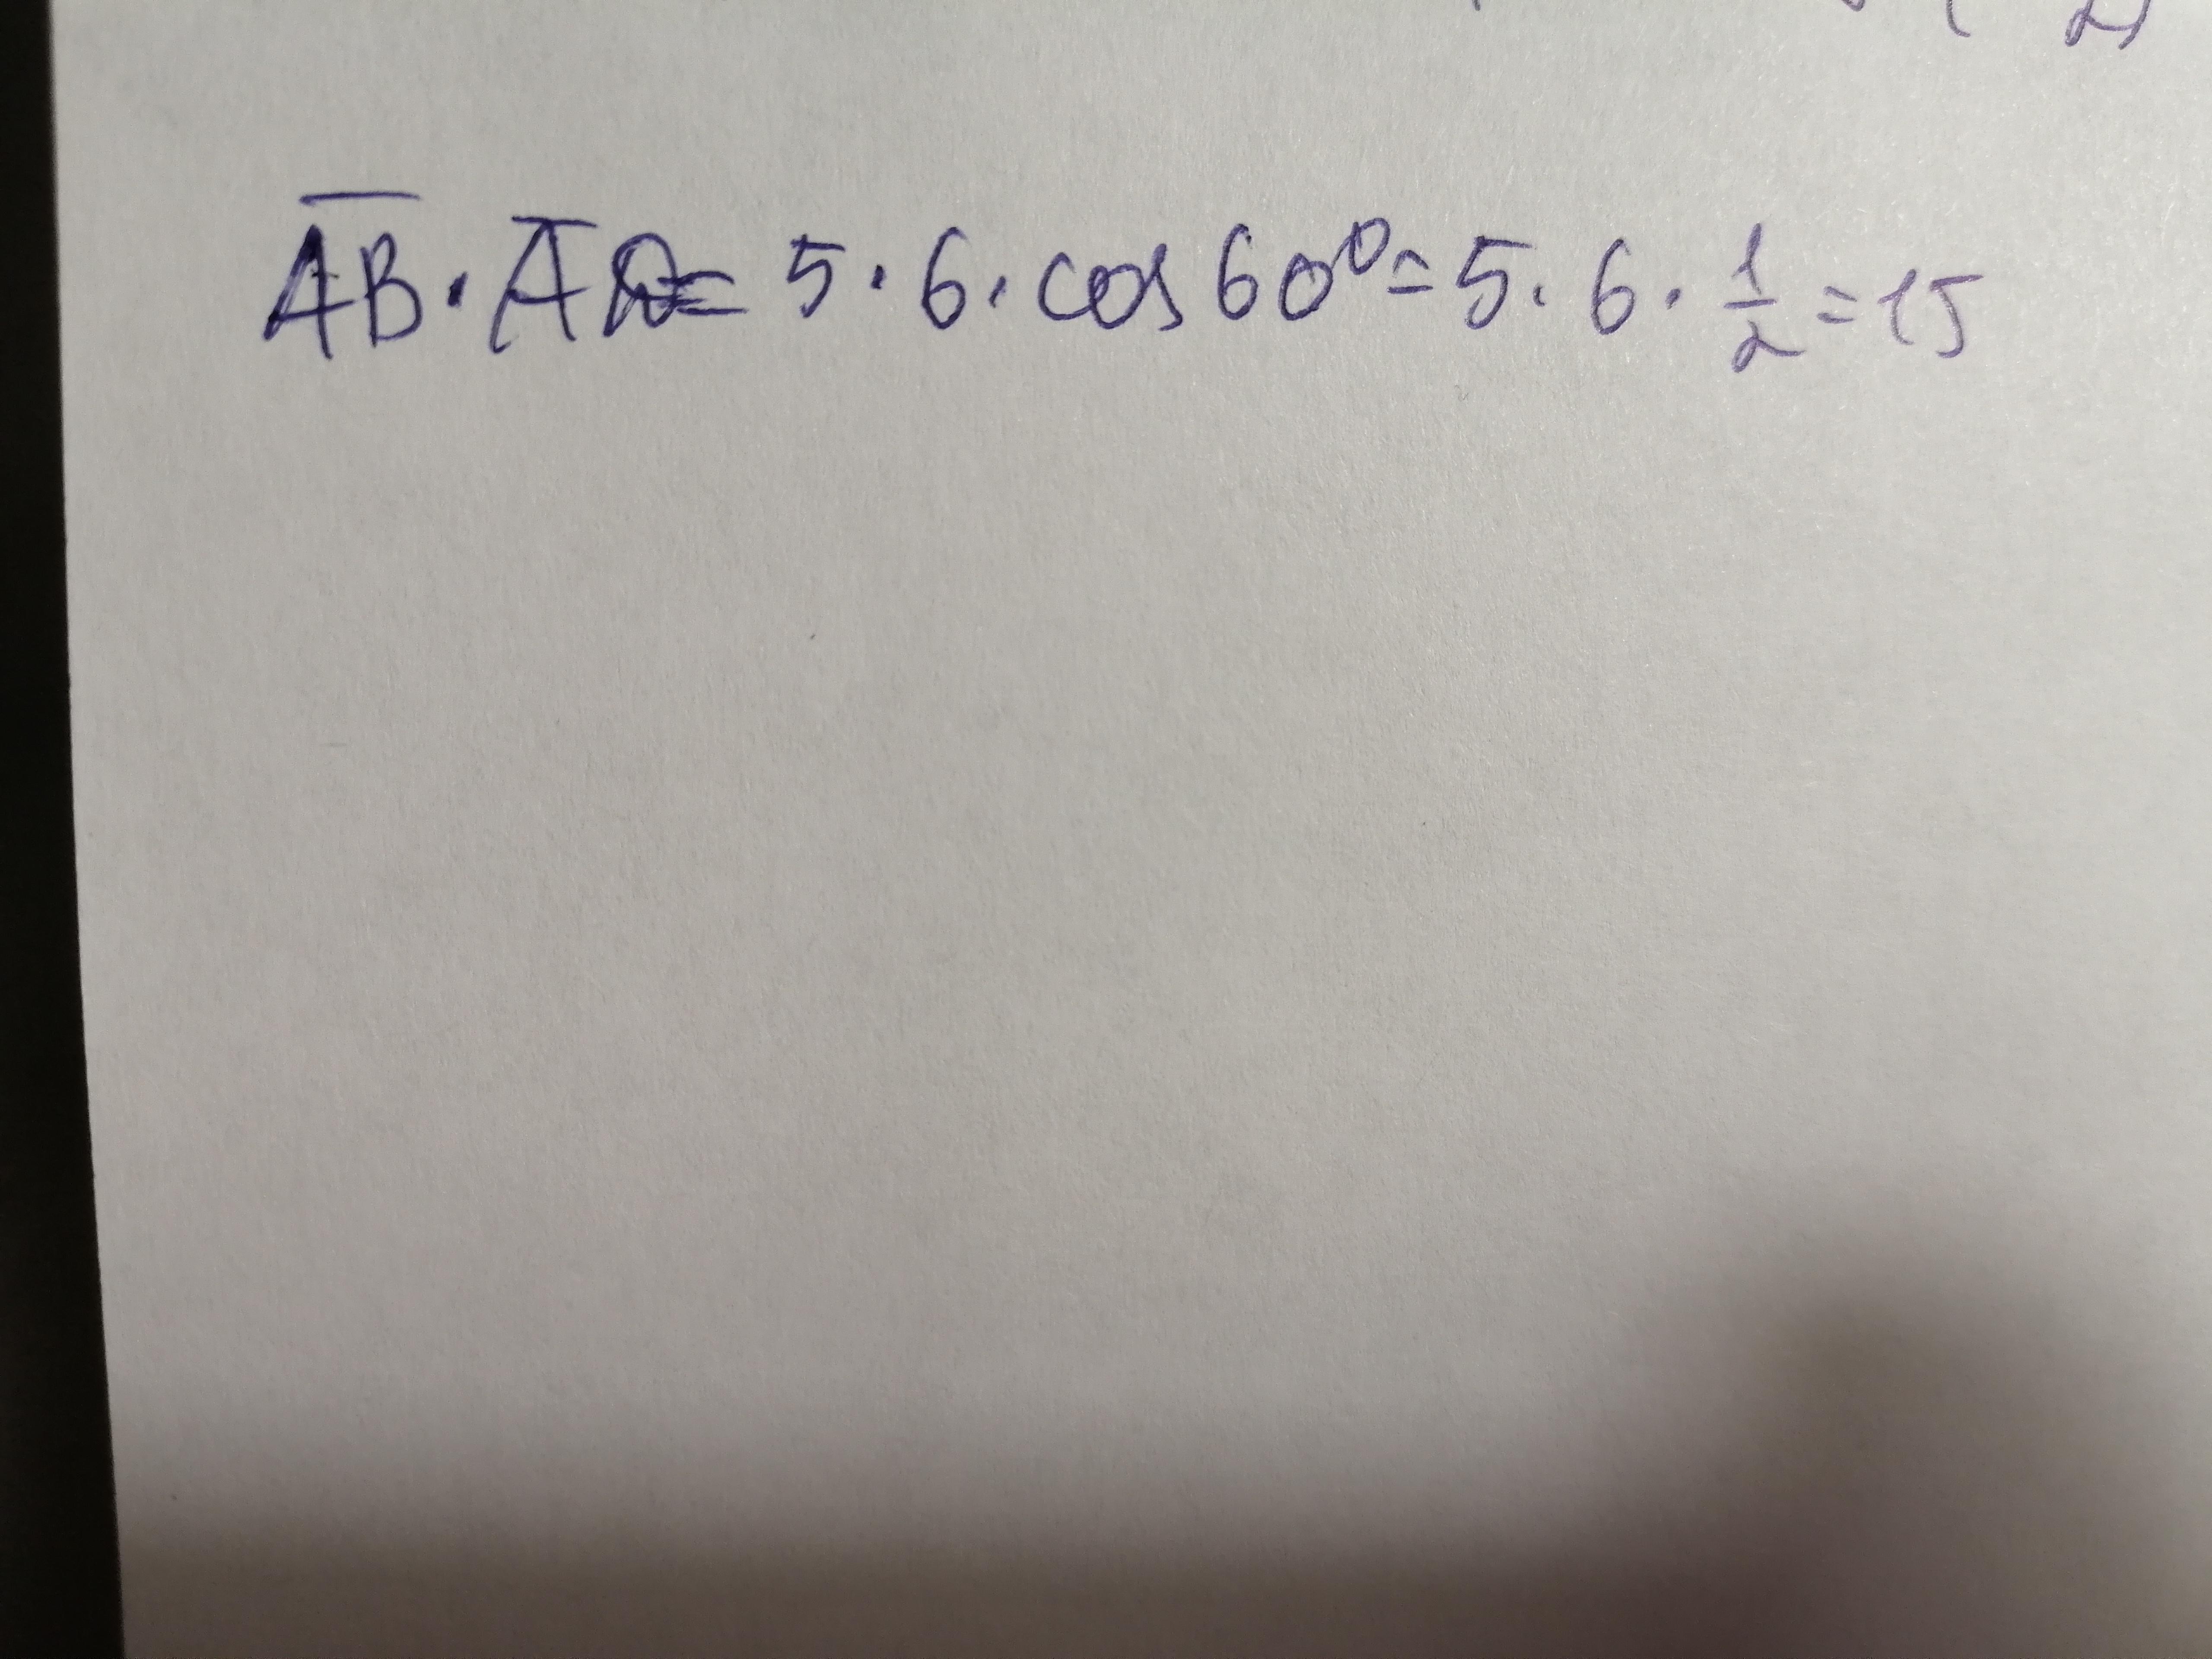 2)
AB · AD = 5 · 6 · cos 60⁰ = 5 · 6 · 1/2 = 15